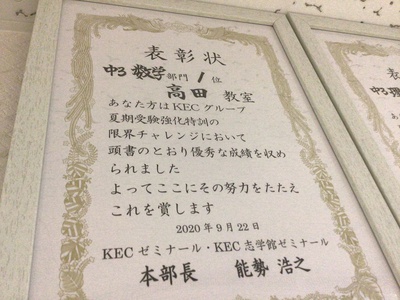 表彰状
中3 数学部門 1位
高田 教室
あなた方はKECグループ
夏期受験強化特訓の
限界チャレンジにおいて
頭書のとおり優秀な成績を収め
られました
よってここにその努力をたたえ
これを賞します
2020年9月22日
KECゼミナール・KEC志学館ゼミナール
本部長 能勢 浩之
表
中3理